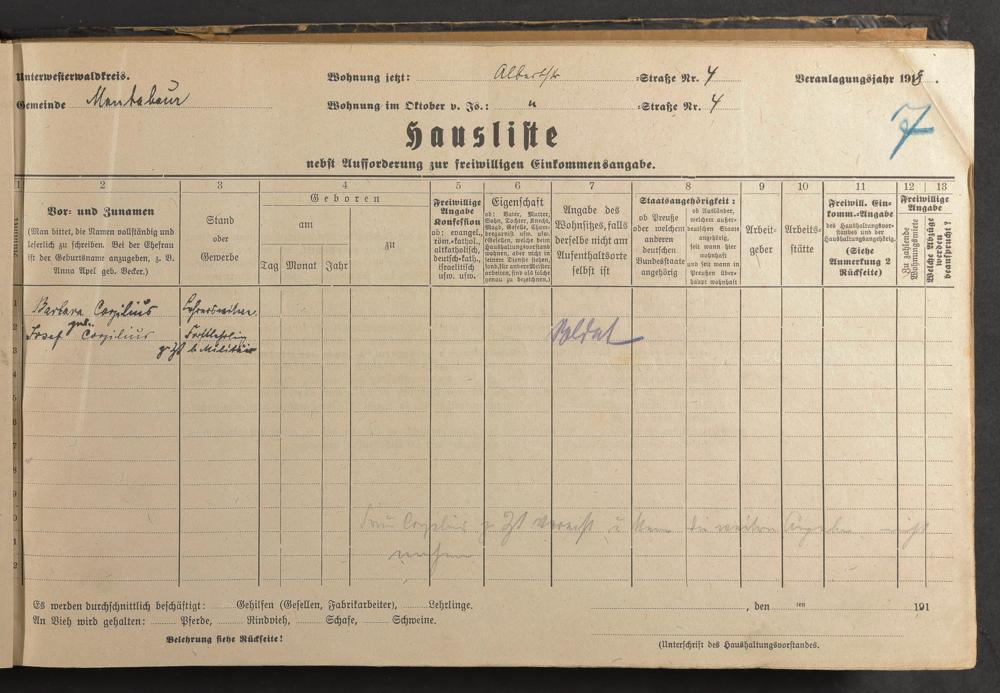 Unterwesterwaldkreis.
Wohnung jetzt: Albertstr =Straße Nr. 4
Veranlagungsjahr 1918.
Gemeinde Montabaur
Wohnung im Oktober v. Js.: " =Straße Nr. 4
7
Hausliste
nebst Aufforderung zur freiwilligen Einkommensangabe.
1 2 3 4 5 6 7 8 9 10 11 12 13
Vor- und Zunamen
(Man bittet, die Namen vollständig und
leserlich zu schreiben. Bei der Ehefrau
ist der Geburtsname anzugeben, z. B.
Anna Apel geb. Becker.)
Stand
oder
Gewerbe
Geboren
am
zu
Tag Monat Jahr
Freiwillige
Angabe
Konfession
ob: evangel.,
röm.-kathol.,
altkatholisch,
deutsch-kath.,
israelitisch
usw. usw.
Eigenschaft
ob: Vater, Mutter,
Sohn, Tochter, Knecht,
Magd, Geselle, Cham-
bregarnist usw. usw.
(Gesellen, welche beim
Haushaltungsvorstand
wohnen, aber nicht in
dessen Dienste stehen,
sond. für andere Meister
arbeiten, sind als solche
genau zu bezeichnen.)
Angabe des
Wohnsitzes, falls
derselbe nicht am
Aufenthaltsorte
selbst ist
Staatsangehörigkeit:
ob Preuße
oder welchem
anderen
deutschen
Bundesstaate
angehörig
ob Ausländer,
welchem außer-
deutschen Staate
angehörig,
seit wann hier
wohnhaft
und seit wann in
Preußen über-
haupt wohnhaft
Arbeit-
geber
Arbeits-
stätte
Freiwill. Ein-
komm.-Angabe
des Haushaltungsvor-
standes und der
Haushaltungsangehörig.
(Siehe
Anmerkung 2
Rückseite)
Freiwillige
Angabe
Zu zahlende
Wohnungsmiete
Welche Abzüge
werden
beansprucht?
1 Barbara Corzilius Lehrerswitwe
geb.
2 Josef Corzilius
3 z Zt b. Militär
Soldat
4
5
6
7
8
9
0 Frau Corzilius z Zt verreist u kann die weitern Angaben nicht
1 machen
2
Es werden durchschnittlich beschäftigt: Gehilfen (Gesellen, Fabrikarbeiter), Lehrlinge.
, den ten 191
An Vieh wird gehalten: Pferde, Rindvieh, Schafe, Schweine.
Belehrung siehe Rückseite!
(Unterschrift des Haushaltungsvorstandes.